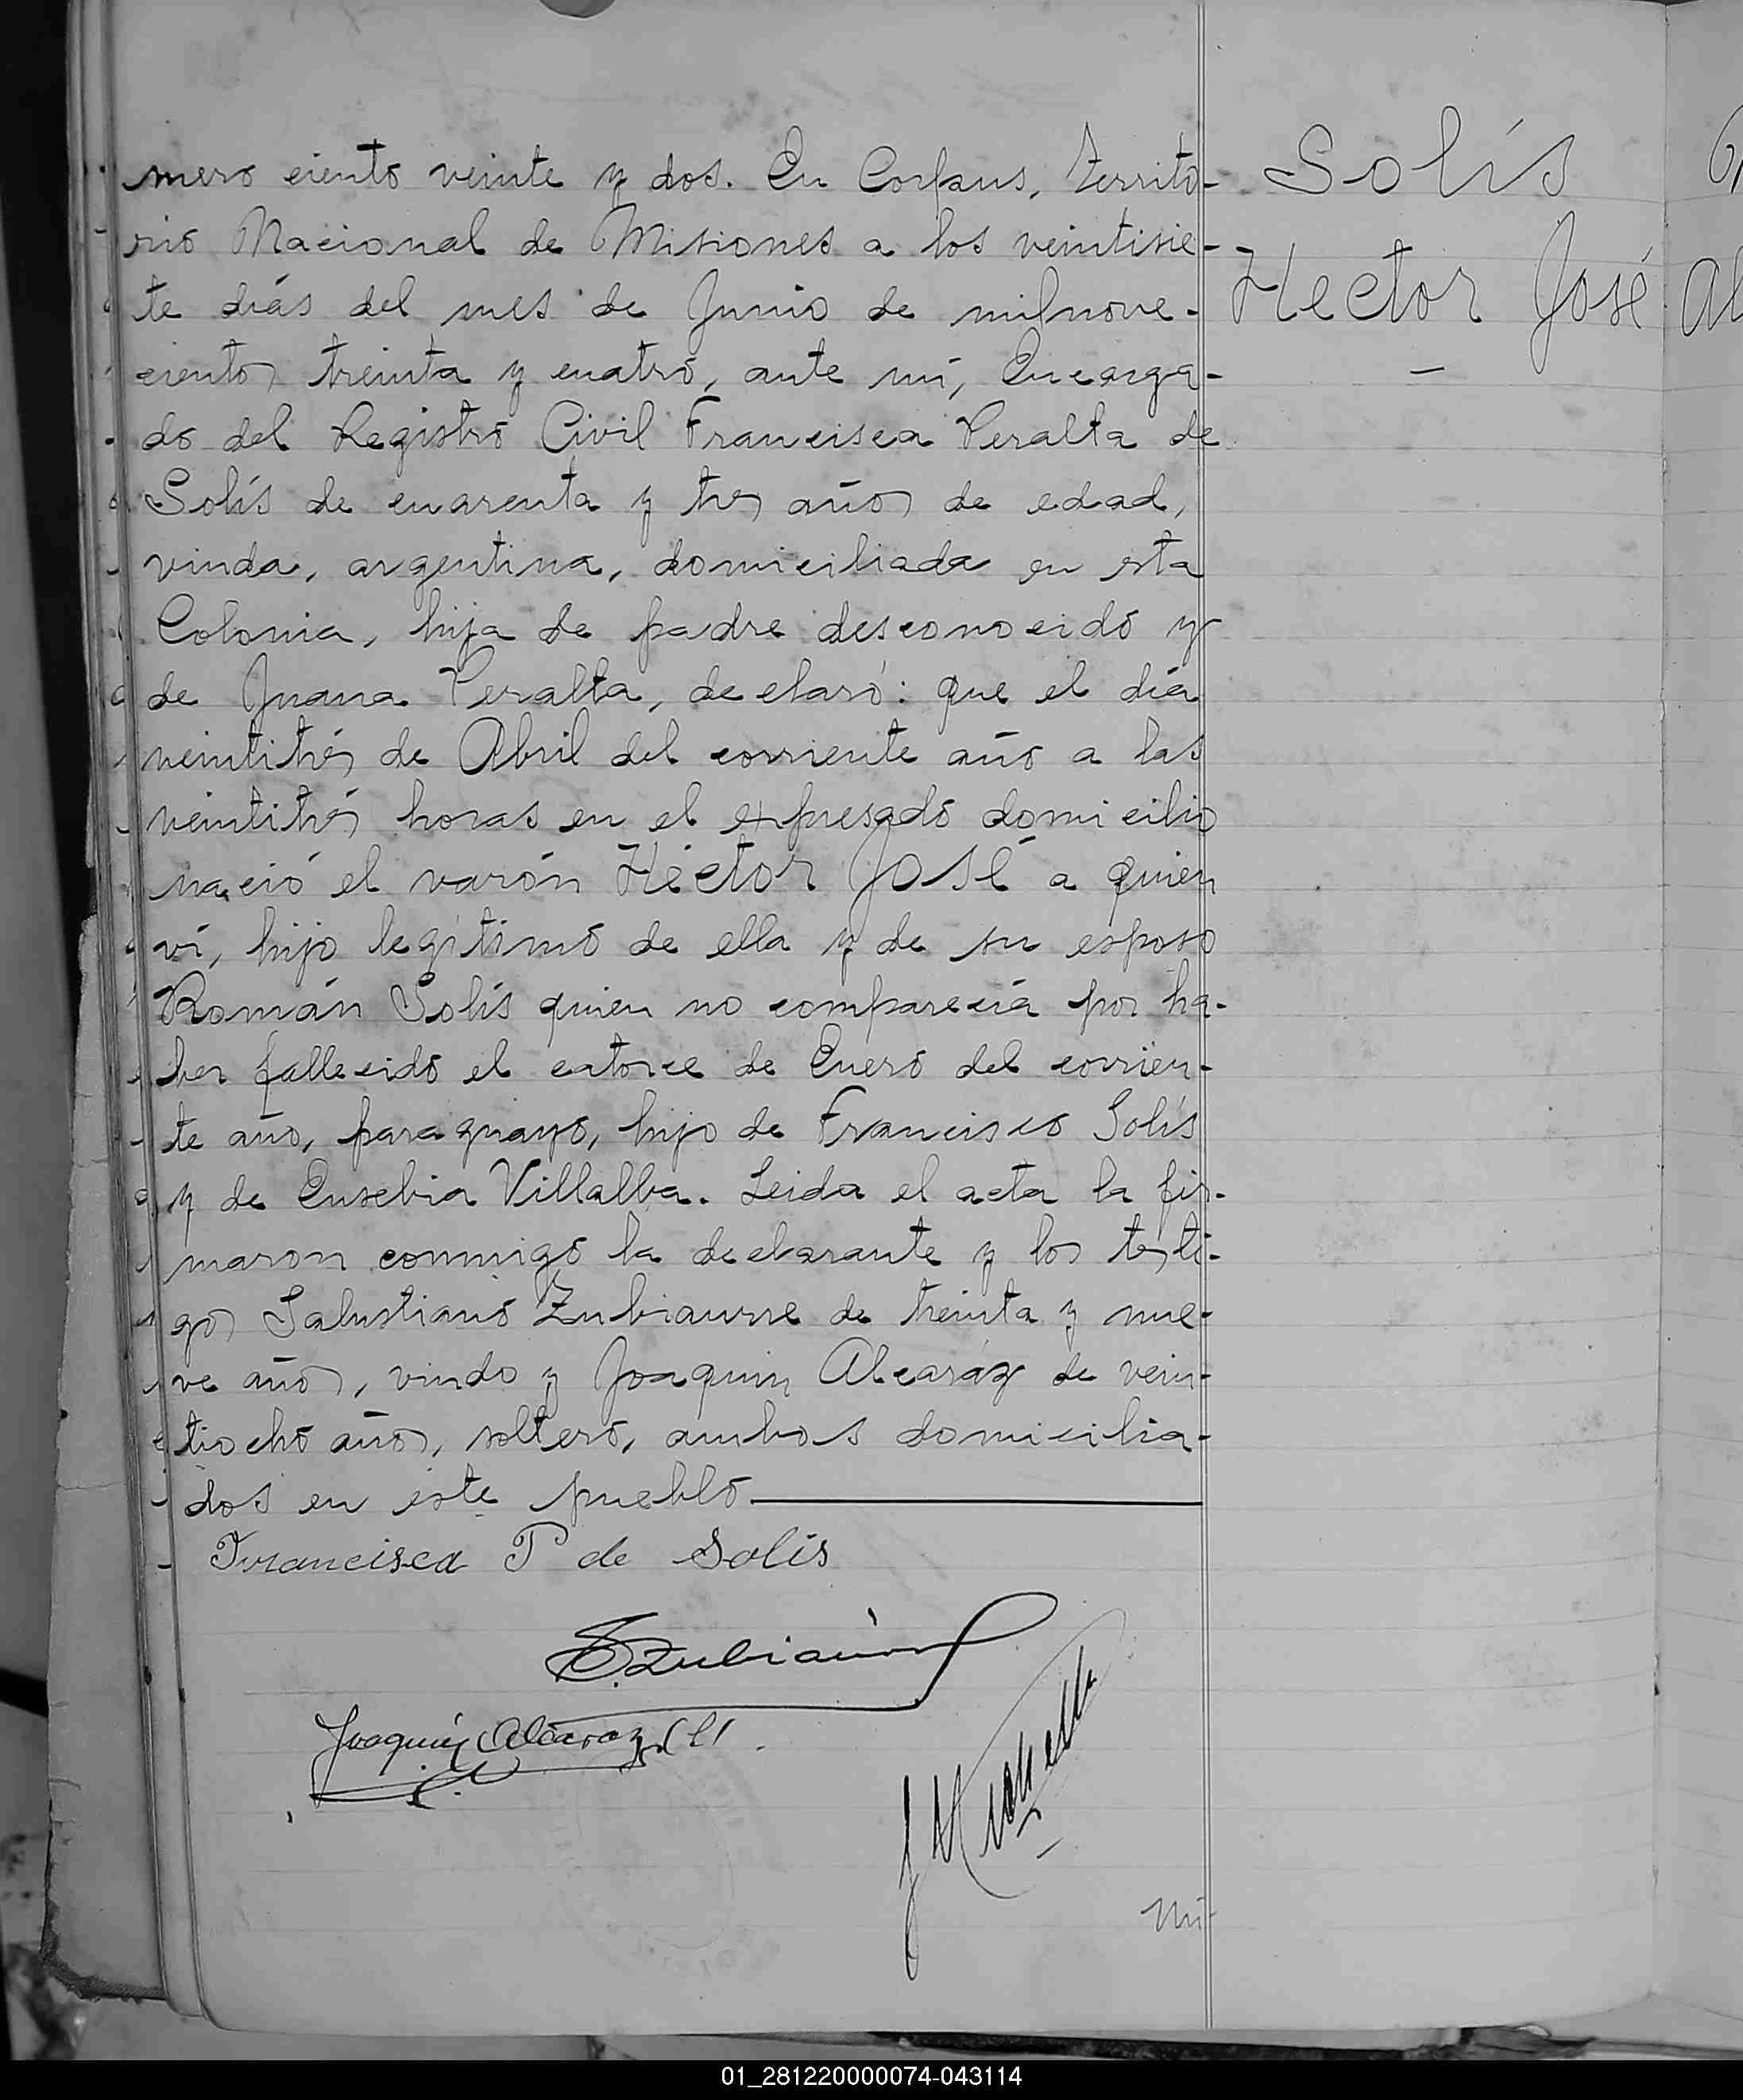 mero ciento veinte y dos. En Corpus, Territo-
rio Nacional de Misiones a los veintisie-
te días del mes de Junio de milnove-
cientos treinta y cuatro, ante mí, Encarga-
do del Registro Civil Francisca Peralta de
Solís de cuarenta y tres años de edad,
viuda, argentina, domiciliada en esta
Colonia, hija de padre desconocido y
de Juana Peralta, declaró: que el día
veintitrés de Abril del corriente año a las
veintitrés horas en el expresado domicilio
nació el varón Héctor José a quien
ví, hijo legítimo de ella y de su esposo
Román Solís quien no comparecía por ha-
ber fallecido el catorce de Enero del corrien-
te año, paraguayo, hijo de Francisco Solís
y de Eusebia Villalba. Leida el acta la fir-
maron conmigo la declarante y los testi-
gos Salustiano Zubiaurre de treinta y nue-
ve años, viudo y Joaquin Alcaráz de vein-
tiocho años, soltero, ambos domicilia-
dos en este pueblo
Francisca P de Solis
S Zubiaurre
Joaquin Alcaraz
Nú-
Solís
Hector José
01_281220000074-043114